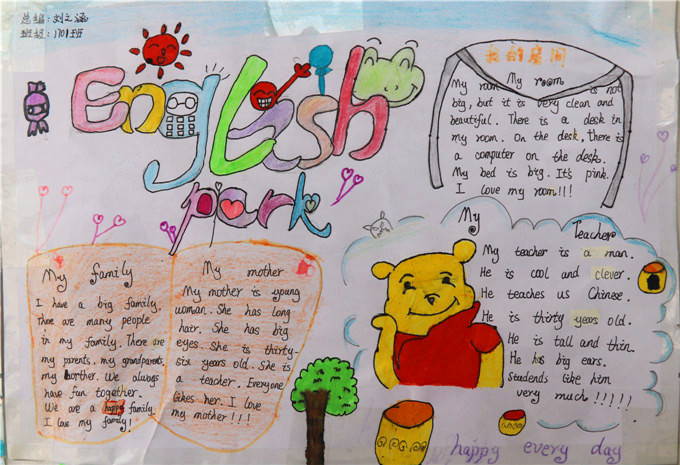 总编：刘之涵
班级：1701班
English
park
我的房间
My room
My room is not
big, but it is very clean and
beautiful. There is a desk in
my room. On the desk, there is
a computer on the desk.
My bed is big. It's pink.
I love my room!!!
My family
I have a big family.
There are many people
in my family. There are
my parents, my grandparents,
my borther. We always
have fun together.
We are a happy family.
I love my family!
My mother
My mother is young
woman. She has long
hair. She has big
eyes. She is thirty-
six years old. She is
a teacher. Everyone
likes her. I love
my mother!!!
My Teacher
My teacher is a man.
He is cool and clever.
He teaches us Chinese.
He is thirty years old.
He is tall and thin.
He has big ears.
Studends like him
very much!!!!!
happy every day